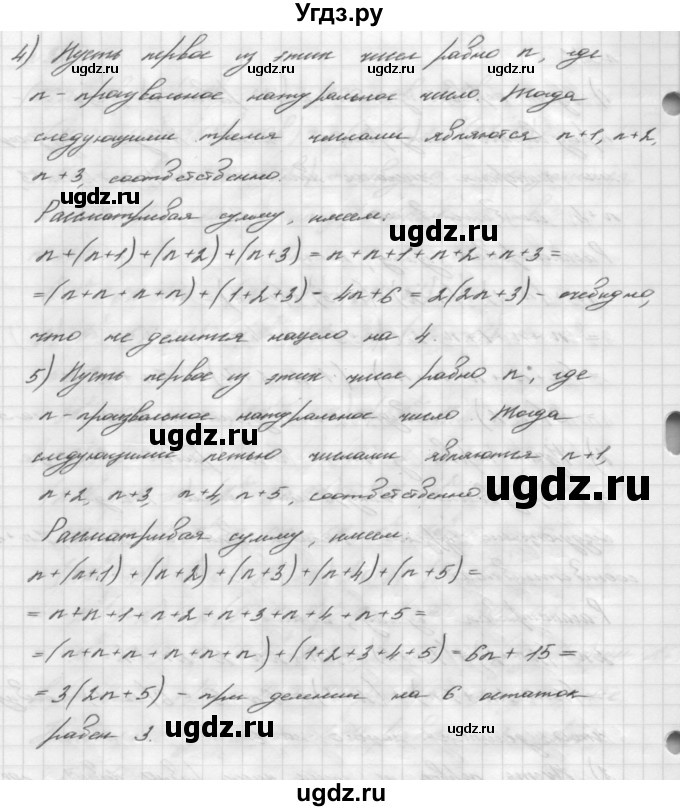 Угдз.ру
4) Пусть первое из этих чисел равно n, где
n - произвольное натуральное число. Тогда
следующими тремя числами являются n+1, n+2,
n+3, соответственно.
Рассматривая сумму, имеем:
n+(n+1)+(n+2)+(n+3)=n+n+1+n+2+n+3=
=(n+n+n+n)+(1+2+3)-4n+6=2(2n+3) - очевидно,
что не делится нацело на 4.
5) Пусть первое из этих чисел равно n, где
n - произвольное натуральное число. Тогда
следующими пятью числами являются n+1,
n+2, n+3, n+4, n+5, соответственно.
Рассматривая сумму, имеем:
n+(n+1)+(n+2)+(n+3)+(n+4)+(n+5)=
=n+n+1+n+2+n+3+n+4+n+5=
=(n+n+n+n+n+n)+(1+2+3+4+5)=6n+15=
=3(2n+5) - при делении на 6 остаток
равен 3.
ugdz.ru
ugdz.ru
ugdz.ru
ugdz.ru
ugdz.ru
ugdz.ru
ugdz.ru
ugdz.ru
ugdz.ru
ugdz.ru
ugdz.ru